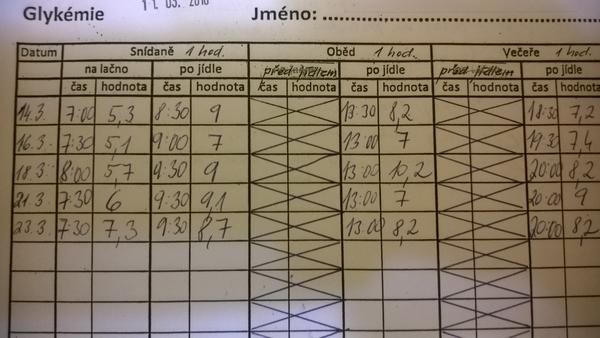 11. 03. 2016
Glykémie Jméno:
Datum Snídaně 1 hod. Oběd 1 hod. Večeře 1 hod.
na lačno po jídle před jídlem po jídle před jídlem po jídle
čas hodnota čas hodnota čas hodnota čas hodnota čas hodnota čas hodnota
14.3. 7:00 5,3 8:30 9 13:30 8,2 18:30 7,2
16.3. 7:30 5,1 9:00 7 13:00 7 19:30 7,4
18.3. 8:00 5,7 9:30 9 13:00 10,2 20:00 8,2
21.3. 7:30 6 9:30 9,1 13:00 7 20:00 9
23.3. 7:30 7,3 9:30 8,7 13:00 8,2 20:00 8,2